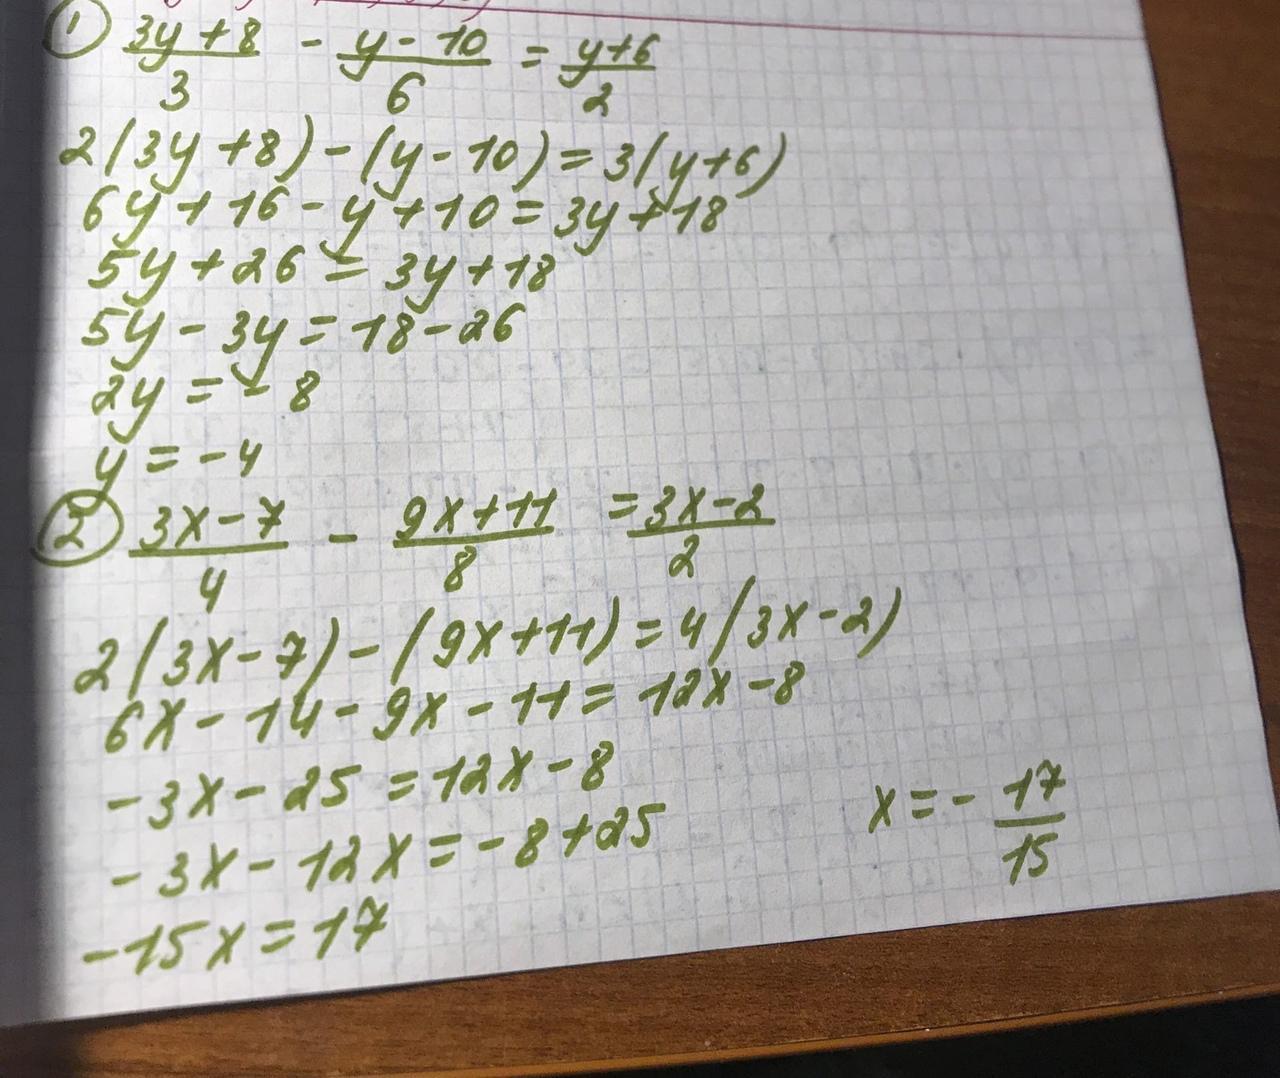 ① (3y+8)/3 - (y-10)/6 = (y+6)/2
2(3y+8)-(y-10)=3(y+6)
6y+16-y+10=3y+18
5y+26=3y+18
5y-3y=18-26
2y=-8
y=-4
② (3x-7)/4 - (9x+11)/8 = (3x-2)/2
2(3x-7)-(9x+11)=4(3x-2)
6x-14-9x-11=12x-8
-3x-25=12x-8
-3x-12x=-8+25
-15x=17
x=-17/15